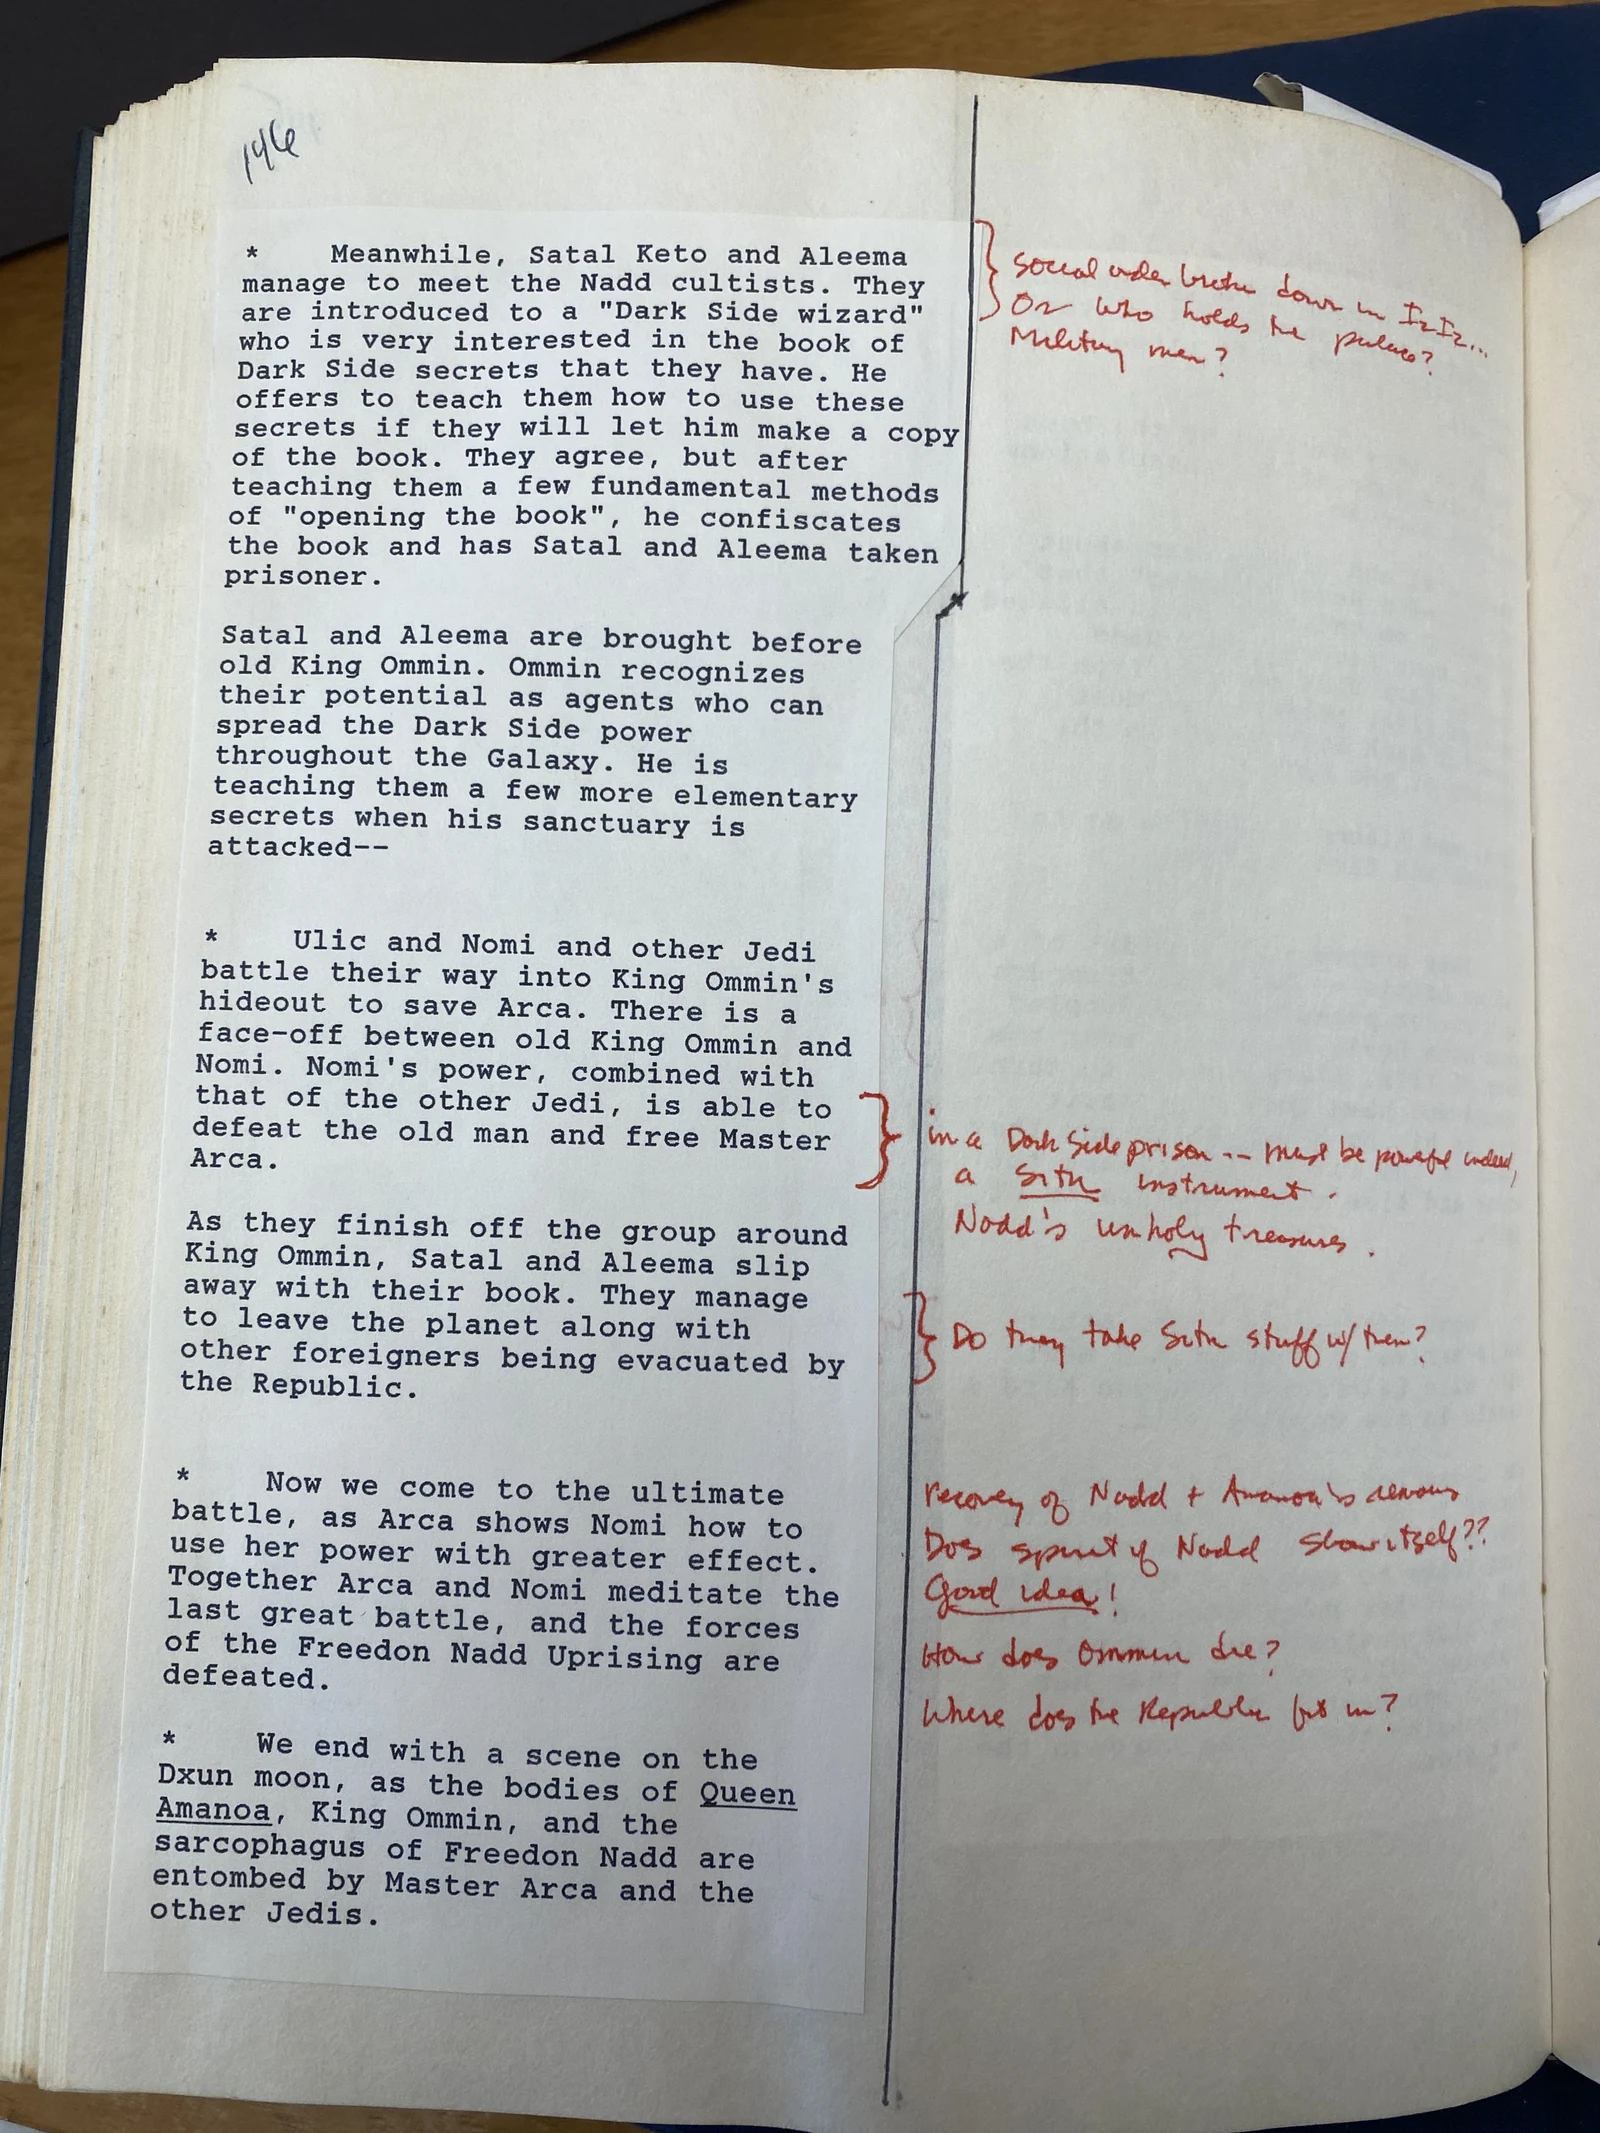 146
* Meanwhile, Satal Keto and Aleema
manage to meet the Nadd cultists. They
are introduced to a "Dark Side wizard"
who is very interested in the book of
Dark Side secrets that they have. He
offers to teach them how to use these
secrets if they will let him make a copy
of the book. They agree, but after
teaching them a few fundamental methods
of "opening the book", he confiscates
the book and has Satal and Aleema taken
prisoner.
Satal and Aleema are brought before
old King Ommin. Ommin recognizes
their potential as agents who can
spread the Dark Side power
throughout the Galaxy. He is
teaching them a few more elementary
secrets when his sanctuary is
attacked--
* Ulic and Nomi and other Jedi
battle their way into King Ommin's
hideout to save Arca. There is a
face-off between old King Ommin and
Nomi. Nomi's power, combined with
that of the other Jedi, is able to
defeat the old man and free Master
Arca.
As they finish off the group around
King Ommin, Satal and Aleema slip
away with their book. They manage
to leave the planet along with
other foreigners being evacuated by
the Republic.
* Now we come to the ultimate
battle, as Arca shows Nomi how to
use her power with greater effect.
Together Arca and Nomi meditate the
last great battle, and the forces
of the Freedon Nadd Uprising are
defeated.
* We end with a scene on the
Dxun moon, as the bodies of Queen
Amanoa, King Ommin, and the
sarcophagus of Freedon Nadd are
entombed by Master Arca and the
other Jedis.
Social order broke down in IzIz...
Or who holds the palace?
Military men?
in a Dark Side prison -- must be powerful indeed,
a Sith instrument.
Nadd's unholy treasures.
Do they take Sith stuff w/ them?
recovery of Nadd + Amanoa's
Does spirit of Nadd show itself??
Good idea!
How does Ommin die?
Where does the Republic fit in?